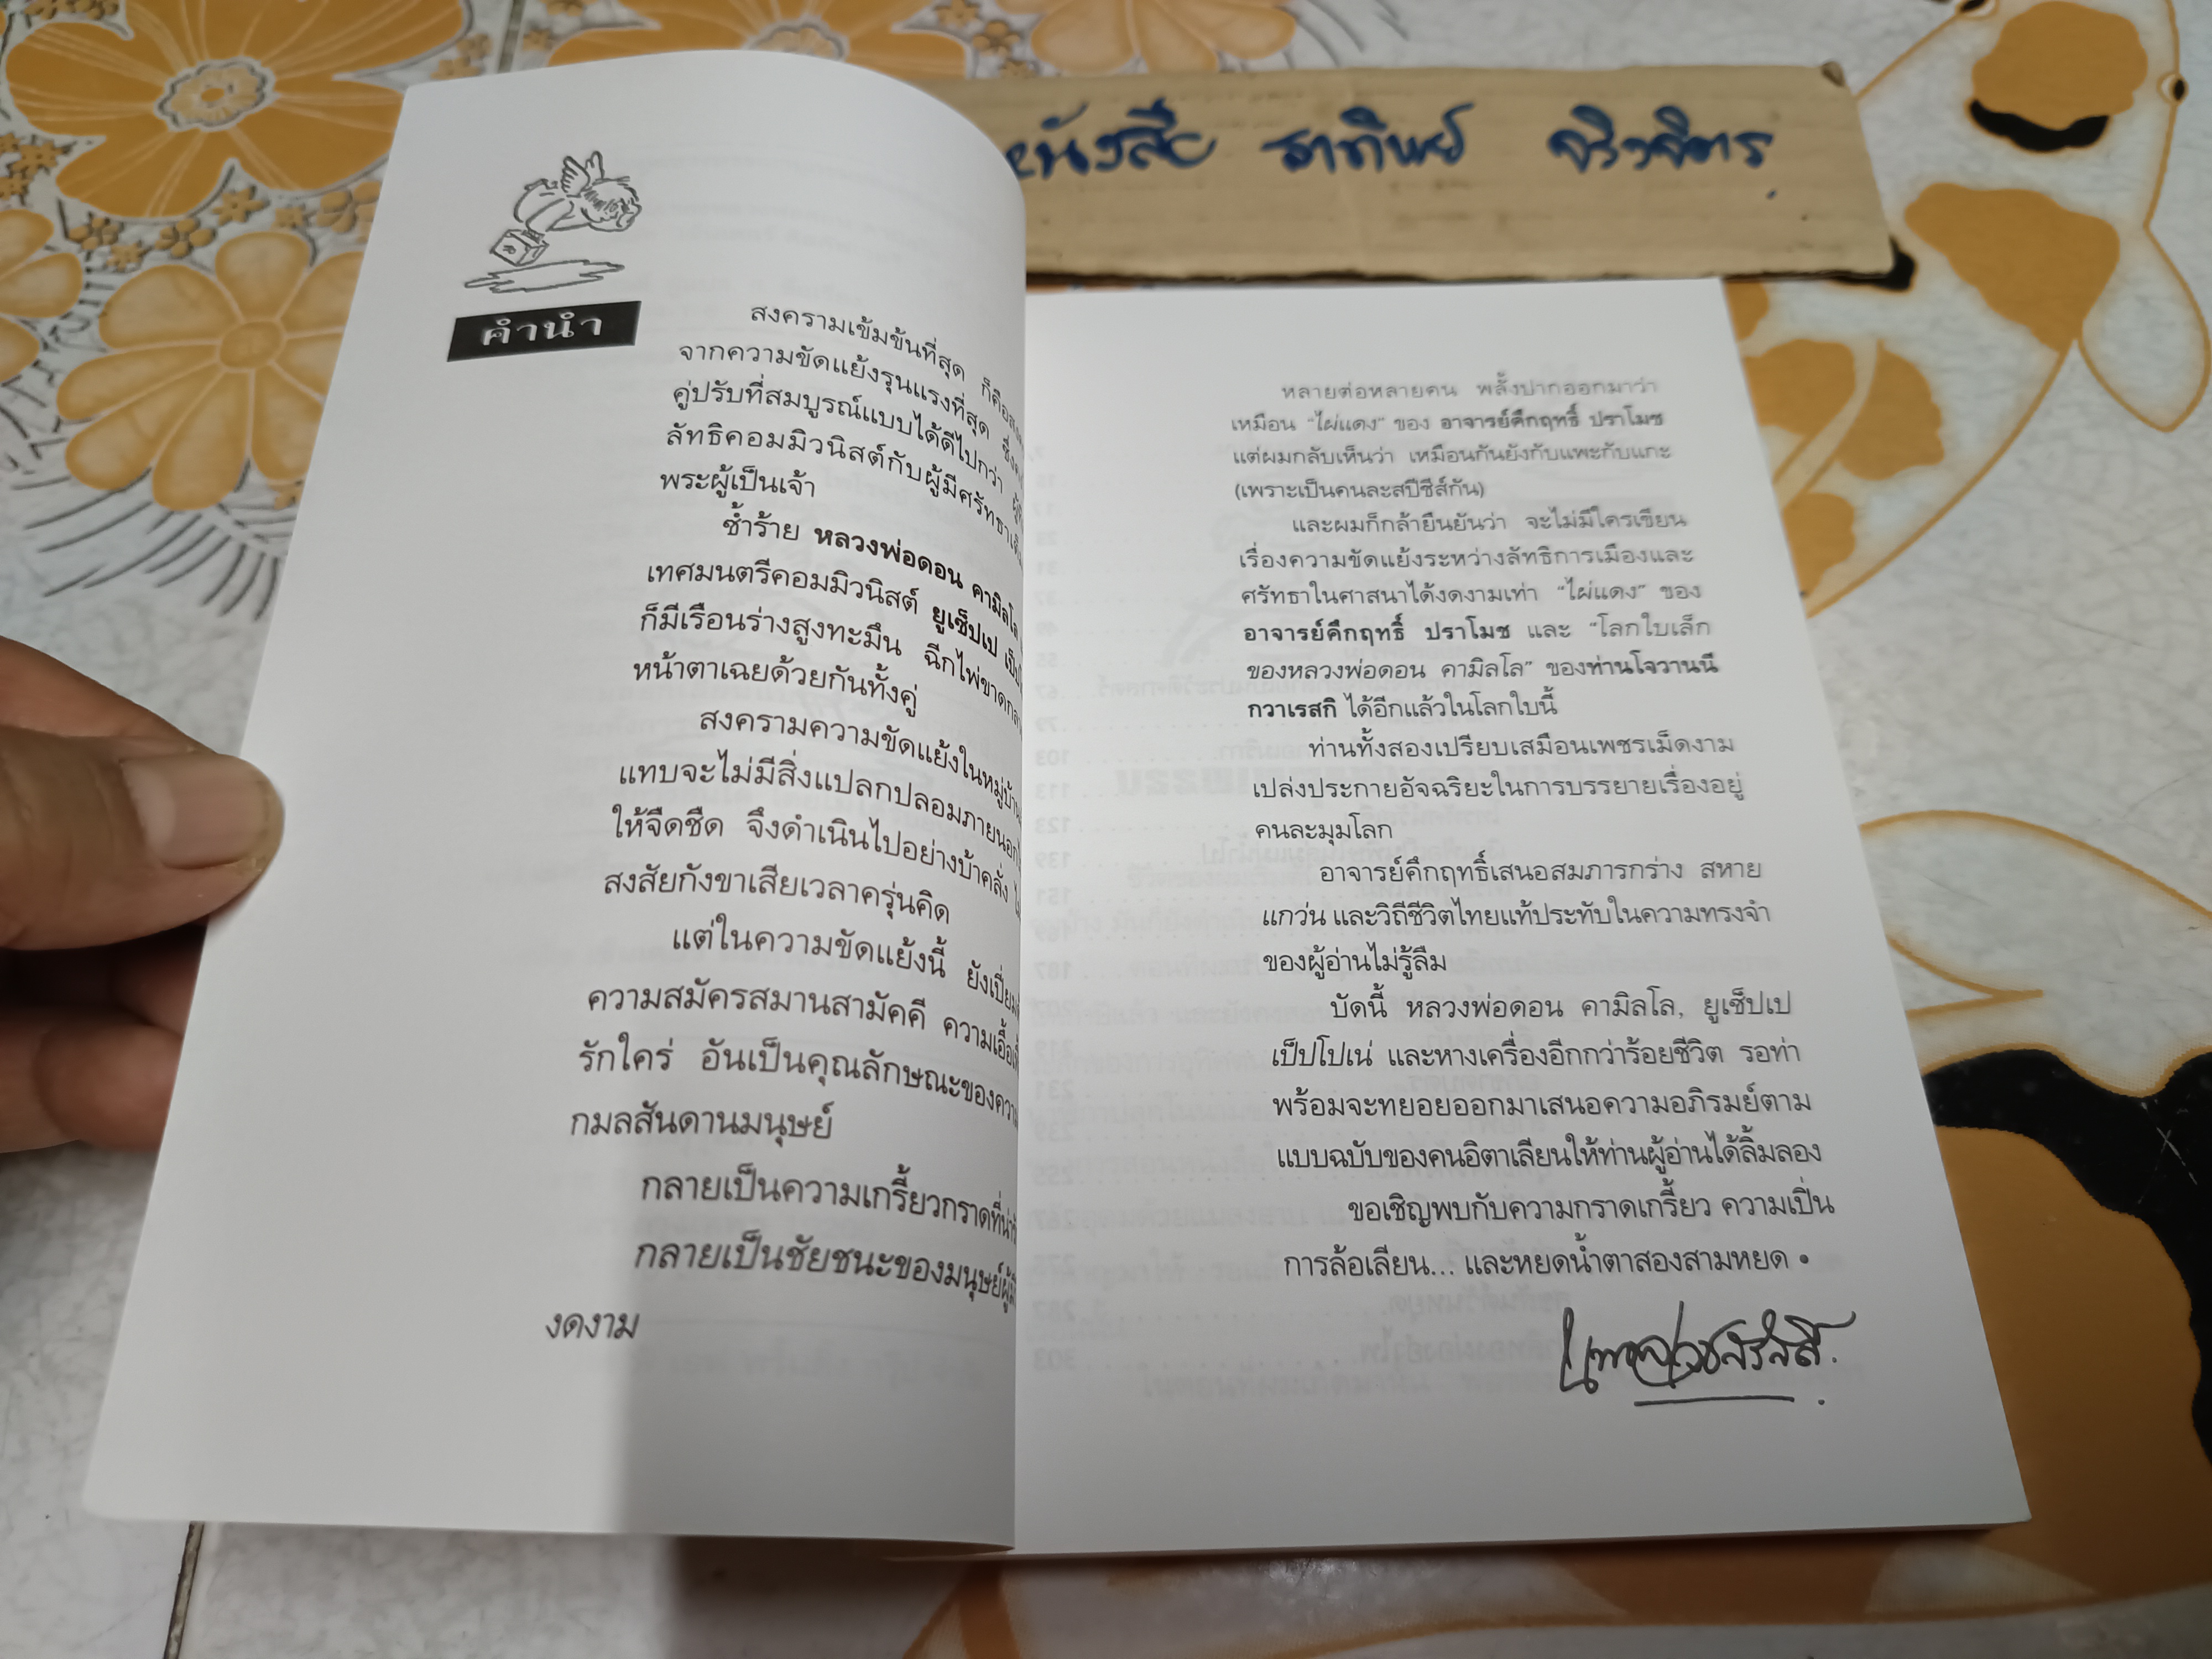 หนังสือ ธาทิพย์ จิรวจิตร
คำนำ
สงครามเข้มข้นที่สุด ก็คือ
จากความขัดแย้งรุนแรงที่สุด ซึ่ง
คู่ปรับที่สมบูรณ์แบบได้ดีไปกว่า
ลัทธิคอมมิวนิสต์กับผู้มีศรัทธา
พระผู้เป็นเจ้า
ซ้ำร้าย หลวงพ่อดอน คามิลโล
เทศมนตรีคอมมิวนิสต์ ยูเซ็ปเป
ก็มีเรือนร่างสูงทะมึน ฉีกไพ่ขาด
หน้าตาเฉยด้วยกันทั้งคู่
สงครามความขัดแย้งในหมู่บ้าน
แทบจะไม่มีสิ่งแปลกปลอมภายนอก
ให้จืดชืด จึงดำเนินไปอย่างบ้าคลั่ง
สงสัยกังขาเสียเวลาครุ่นคิด
แต่ในความขัดแย้งนี้ ยังเปี่ยม
ความสมัครสมานสามัคคี
รักใคร่ อันเป็นคุณลักษณะของ
กมลสันดานมนุษย์
กลายเป็นความเกรี้ยวกราดที่
กลายเป็นชัยชนะของมนุษย์
งดงาม
หลายต่อหลายคน พลั้งปากออกมาว่า
เหมือน “ไผ่แดง” ของ อาจารย์คึกฤทธิ์ ปราโมช
แต่ผมกลับเห็นว่า เหมือนกันยังกับแพะกับแกะ
(เพราะเป็นคนละสปีชีส์กัน)
และผมก็กล้ายืนยันว่า จะไม่มีใครเขียน
เรื่องความขัดแย้งระหว่างลัทธิการเมืองและ
ศรัทธาในศาสนาได้งดงามเท่า “ไผ่แดง” ของ
อาจารย์คึกฤทธิ์ ปราโมช และ “โลกใบเล็ก
ของหลวงพ่อดอน คามิลโล” ของท่านโจวานนี
กวาเรสกิ ได้อีกแล้วในโลกใบนี้
ท่านทั้งสองเปรียบเสมือนเพชรเม็ดงาม
เปล่งประกายอัจฉริยะในการบรรยายเรื่องอยู่
คนละมุมโลก
อาจารย์คึกฤทธิ์เสนอสมภารกร่าง สหาย
แกว่น และวิถีชีวิตไทยแท้ประทับในความทรงจำ
ของผู้อ่านไม่รู้ลืม
บัดนี้ หลวงพ่อดอน คามิลโล, ยูเซ็ปเป
เป็ปโปเน่ และหางเครื่องอีกกว่าร้อยชีวิต รอท่า
พร้อมจะทยอยออกมาเสนอความอภิรมย์ตาม
แบบฉบับของคนอิตาเลียนให้ท่านผู้อ่านได้ลิ้มลอง
ขอเชิญพบกับความกราดเกรี้ยว ความเปิ่น
การล้อเลียน... และหยดน้ำตาสองสามหยด •